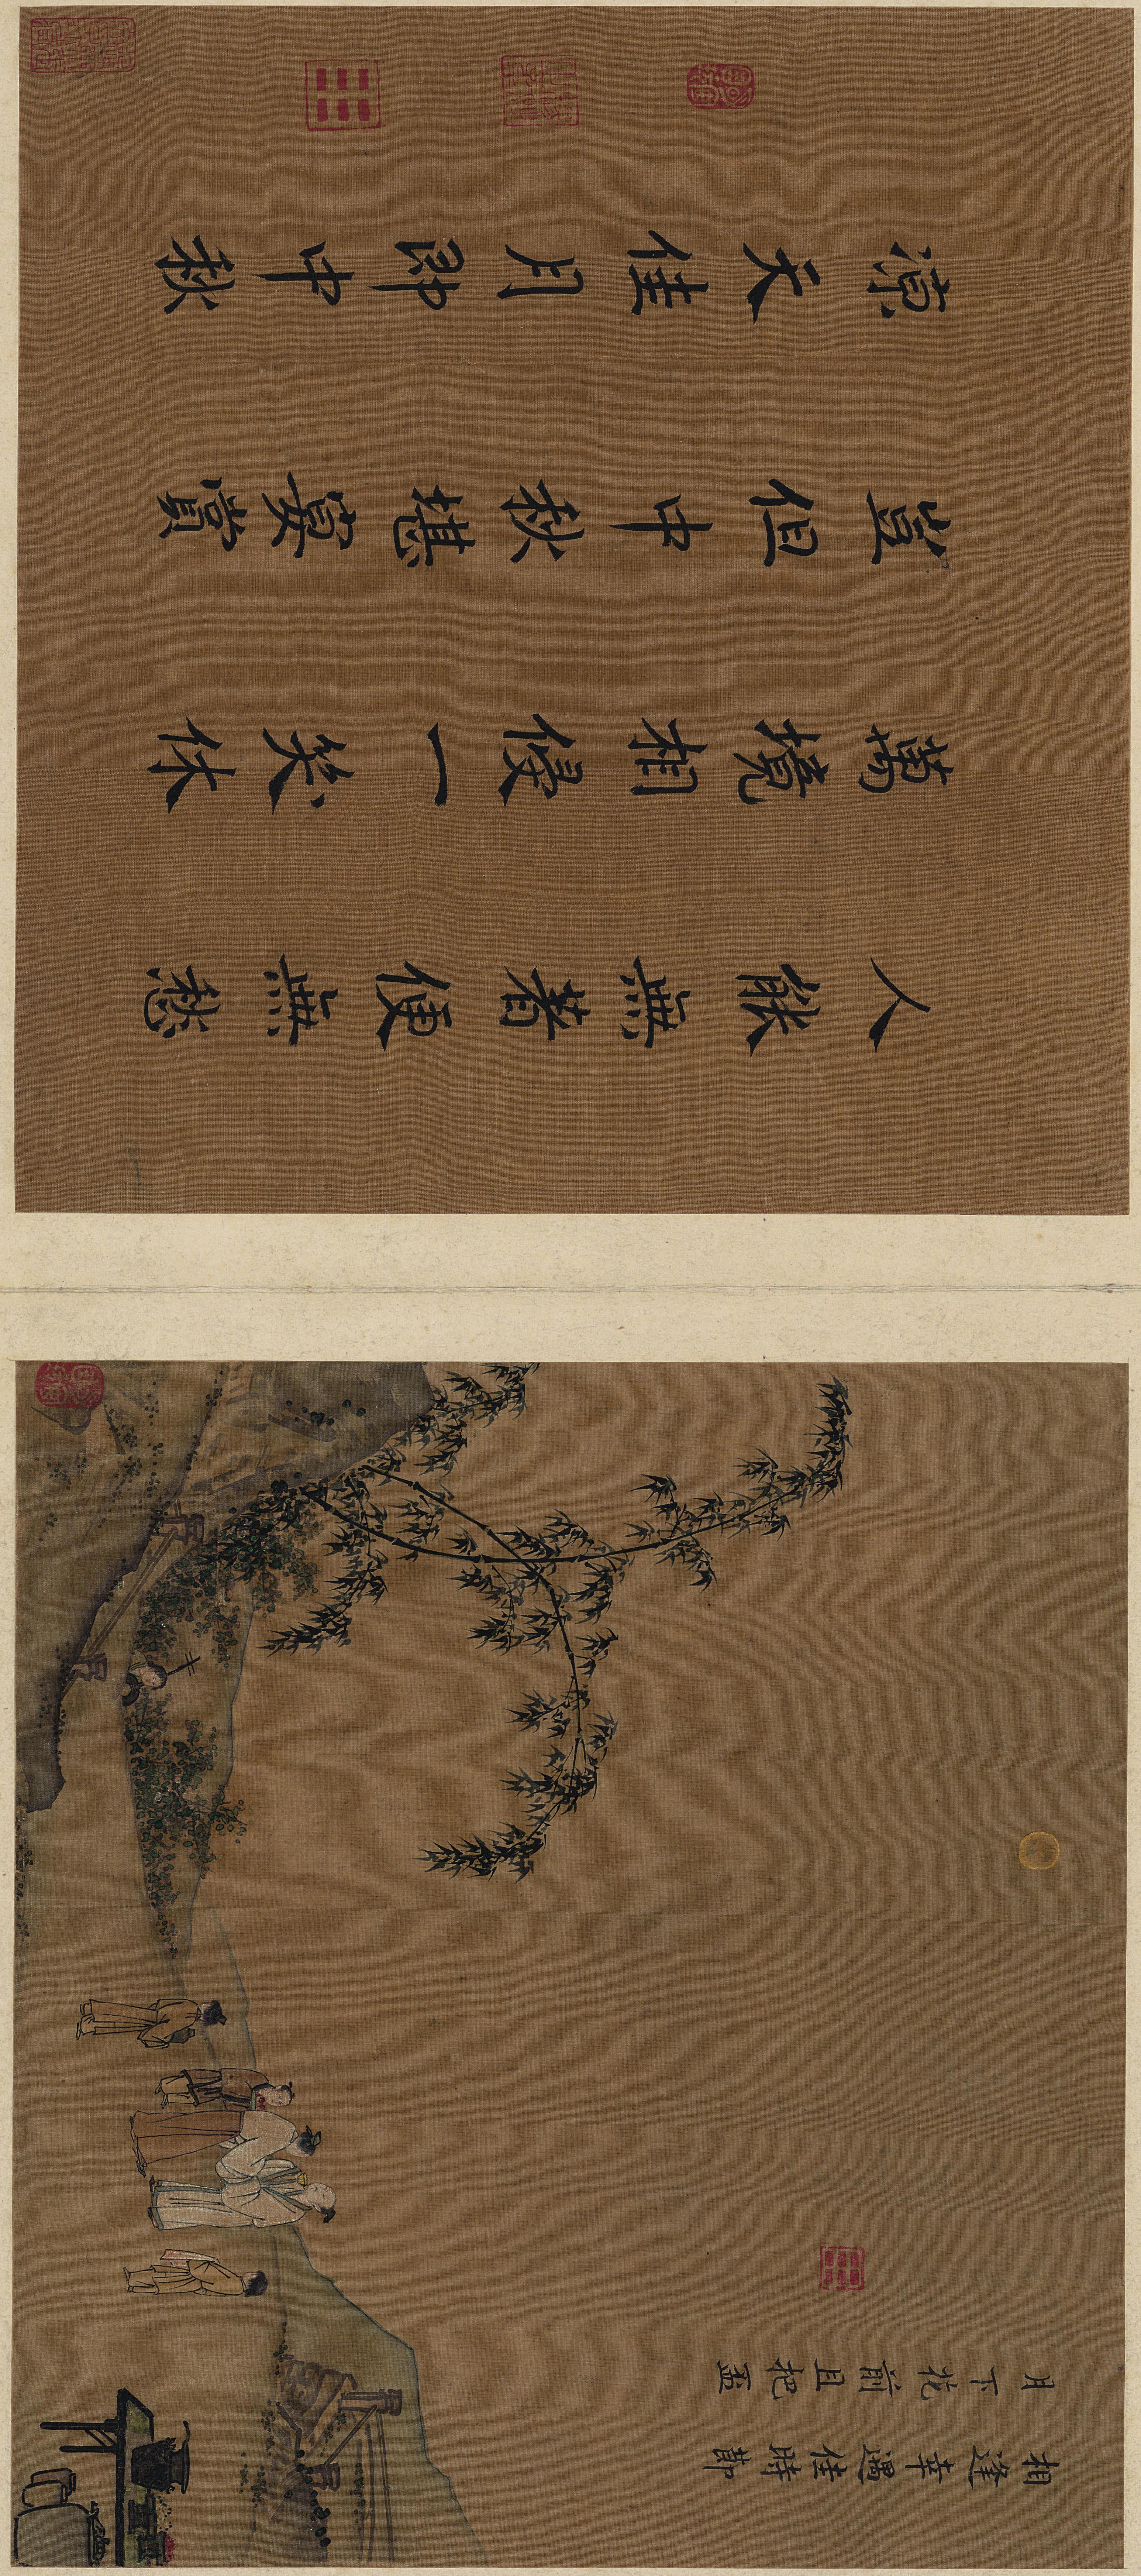 相逢幸遇佳時節
月下花前且把盃
人能無著便無愁
萬境相侵一笑休
豈但中秋堪宴賞
涼天佳月即中秋